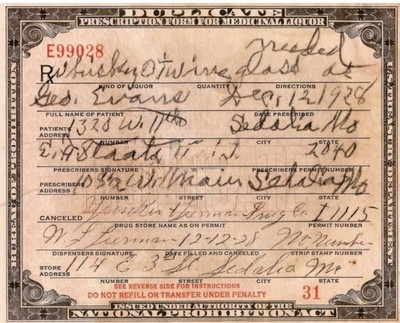 DUPLICATE
PRESCRIPTION FORM FOR MEDICINAL LIQUOR
E99028
needed
Rx Whiskey wineglass at
KIND OF LIQUOR QUANTITY DIRECTIONS
Geo. Evans Dec. 12 1928
FULL NAME OF PATIENT DATE PRESCRIBED
PATIENTS ADDRESS 1320 W. 11th Sedalia Mo
NUMBER STREET CITY STATE
2040
PRESCRIBERS SIGNATURE PRESCRIBERS PERMIT NUMBER
PRESCRIBERS ADDRESS Sedalia Mo
NUMBER STREET CITY STATE
CANCELED Drug Co I 1115
DRUG STORE NAME AS ON PERMIT PERMIT NUMBER
12-12-28 No Number
DISPENSERS SIGNATURE DATE FILLED AND CANCELED STRIP STAMP NUMBER
STORE ADDRESS 114 E 3 St Sedalia Mo
NUMBER STREET CITY STATE
SEE REVERSE SIDE FOR INSTRUCTIONS
DO NOT REFILL OR TRANSFER UNDER PENALTY 31
ISSUED UNDER AUTHORITY OF THE
NATIONAL PROHIBITION ACT